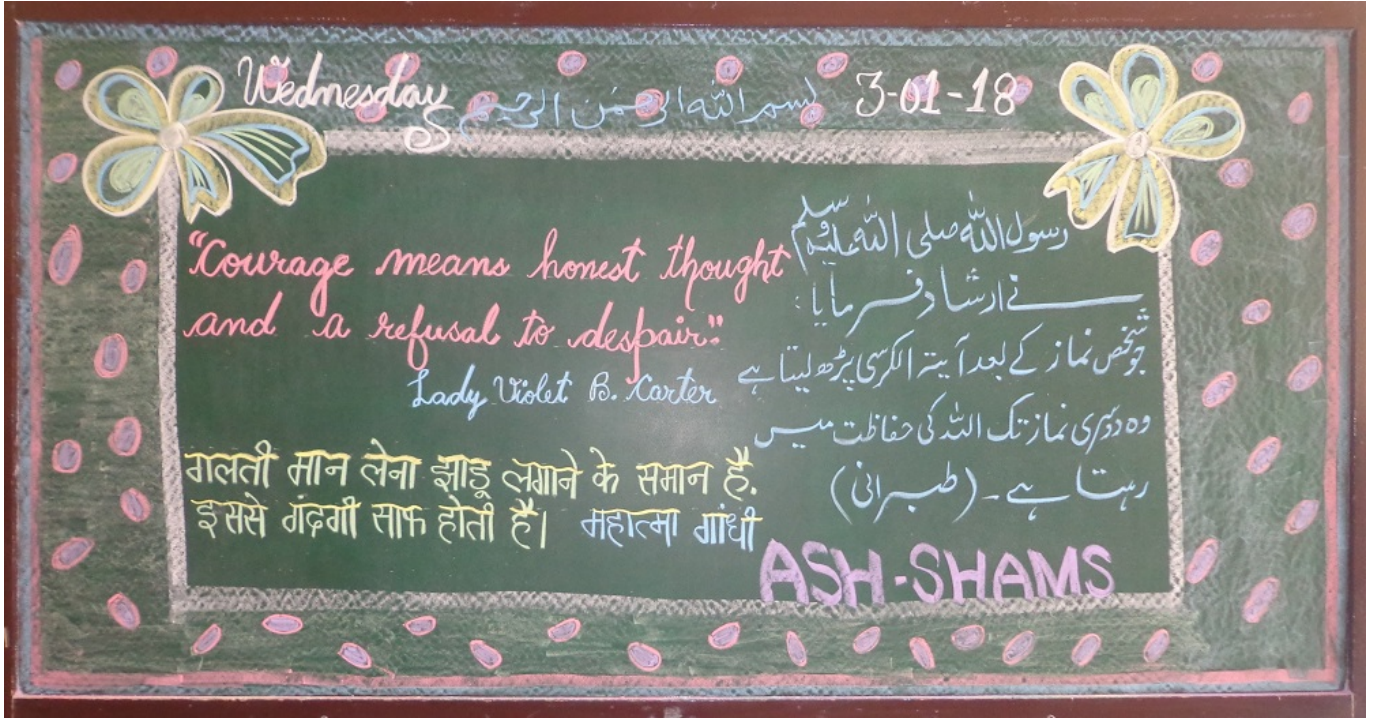 Wednesday بسم اللہ الرحمٰن الرحیم 3-01-18
"Courage means honest thought
and a refusal to despair."
Lady Violet B. Carter
गलती मान लेना झाडू लगाने के समान है.
इससे गंदगी साफ होती है। महात्मा गांधी
رسول اللہ صلی اللہ علیہ وسلم
نے ارشاد فرمایا:
جو شخص نماز کے بعد آیتہ الکرسی پڑھ لیتا ہے
وہ دوسری نماز تک اللہ کی حفاظت میں
رہتا ہے۔ (طبرانی)
ASH-SHAMS